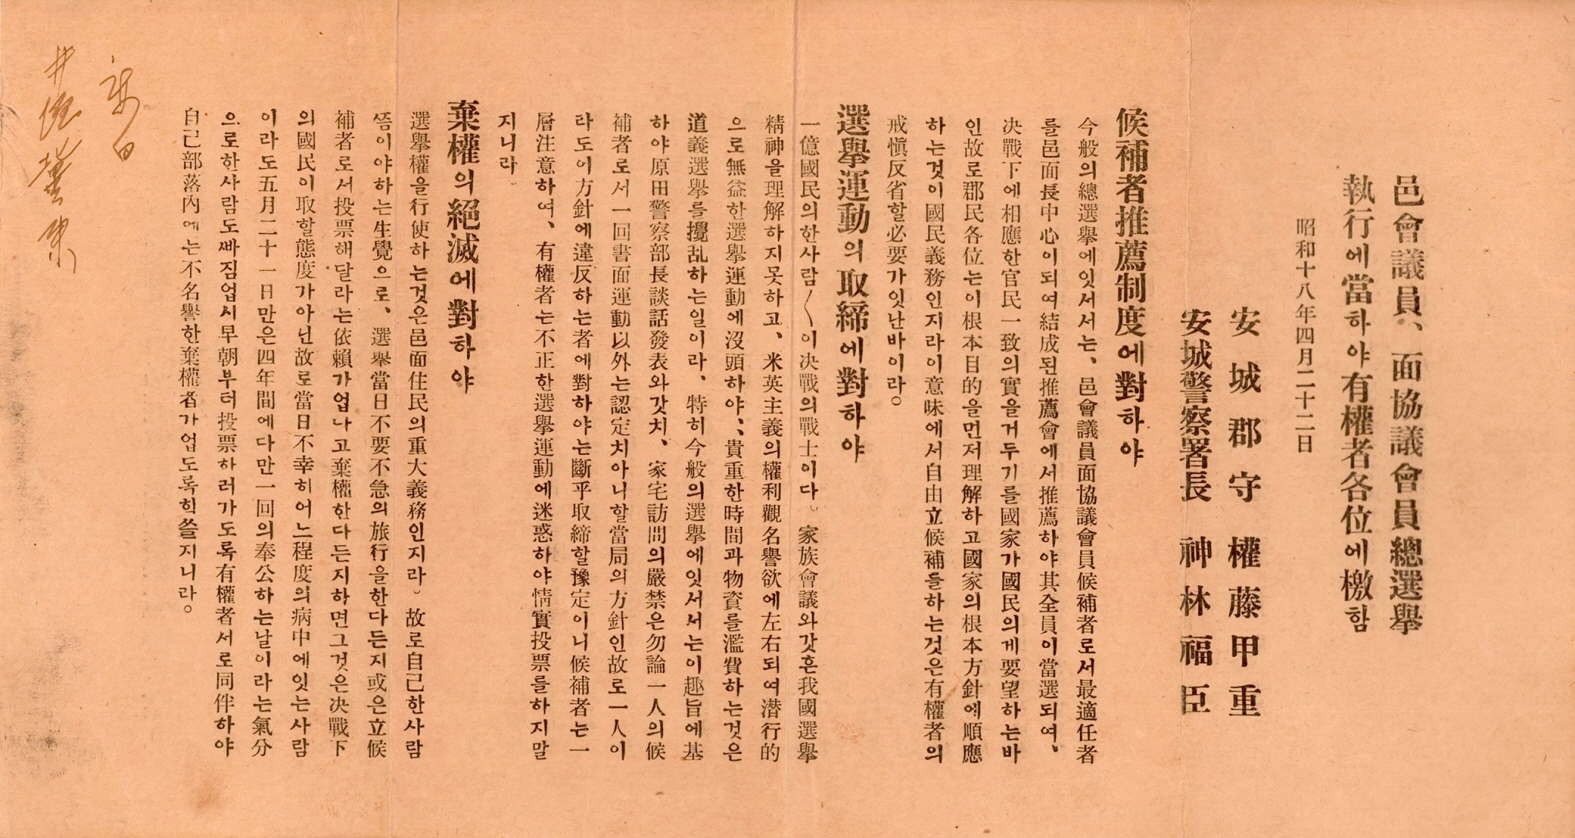 邑會議員、面協議會員總選擧
執行에當하야有權者各位에檄함
昭和十八年四月二十二日
安城郡守 權藤甲重
安城警察署長 神林福臣
候補者推薦制度에對하야
今般의總選擧에잇서서는、邑會議員面協議會員候補者로서最適任者
를邑面長中心이되여結成된推薦會에서推薦하야其全員이當選되여、
決戰下에相應한官民一致의實을거두기를國家가國民의게要望하는바
인故로郡民各位는이根本目的을먼저理解하고國家의根本方針에順應
하는것이國民義務인지라이意味에서自由立候補를하는것은有權者의
戒愼反省할必要가잇난바이라。
選擧運動의取締에對하야
一億國民의한사람〱이決戰의戰士이다。家族會議와갓흔我國選擧
精神을理解하지못하고、米英主義의權利觀名譽欲에左右되여潜行的
으로無益한選擧運動에沒頭하야、貴重한時間과物資를濫費하는것은
道義選擧를攪乱하는일이라、特히今般의選擧에잇서서는이趣旨에基
하야原田警察部長談話發表와갓치、家宅訪問의嚴禁은勿論一人의候
補者로서一回書面運動以外는認定치아니할當局의方針인故로一人이
라도이方針에違反하는者에對하야는斷乎取締할豫定이니候補者는一
層注意하여、有權者는不正한選擧運動에迷惑하야情實投票를하지말
지니라
棄權의絕滅에對하야
選擧權을行使하는것은邑面住民의重大義務인지라。故로自己한사람
쯤이야하는生覺으로、選擧當日不要不急의旅行을한다든지或은立候
補者로서投票해달라는依賴가업나고棄權한다든지하면그것은决戰下
의國民이取할態度가아닌故로當日不幸히어느程度의病中에잇는사람
이라도五月二十一日만은四年間에다만一回의奉公하는날이라는氣分
으로한사람도빠짐업시早朝부터投票하러가도록有權者서로同伴하야
自己部落內에는不名譽한棄權者가업도록힘쓸지니라。